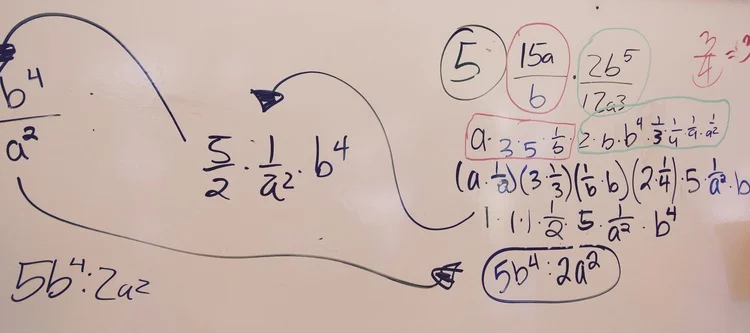 b⁴/a²
5/2 · 1/a² · b⁴
5b⁴:2a²
5 15a/b · 2b⁵/12a3
3/4 =
a · 3 · 5 · 1/b · 2 · b · b⁴ · 1/3 · 1/4 · 1/a · 1/a²
(a · 1/a)(3 · 1/3)(1/b · b)(2 · 1/4) · 5 · 1/a² · b
1 · 1 · 1 · 1/2 · 5 · 1/a² · b⁴
5b⁴:2a²